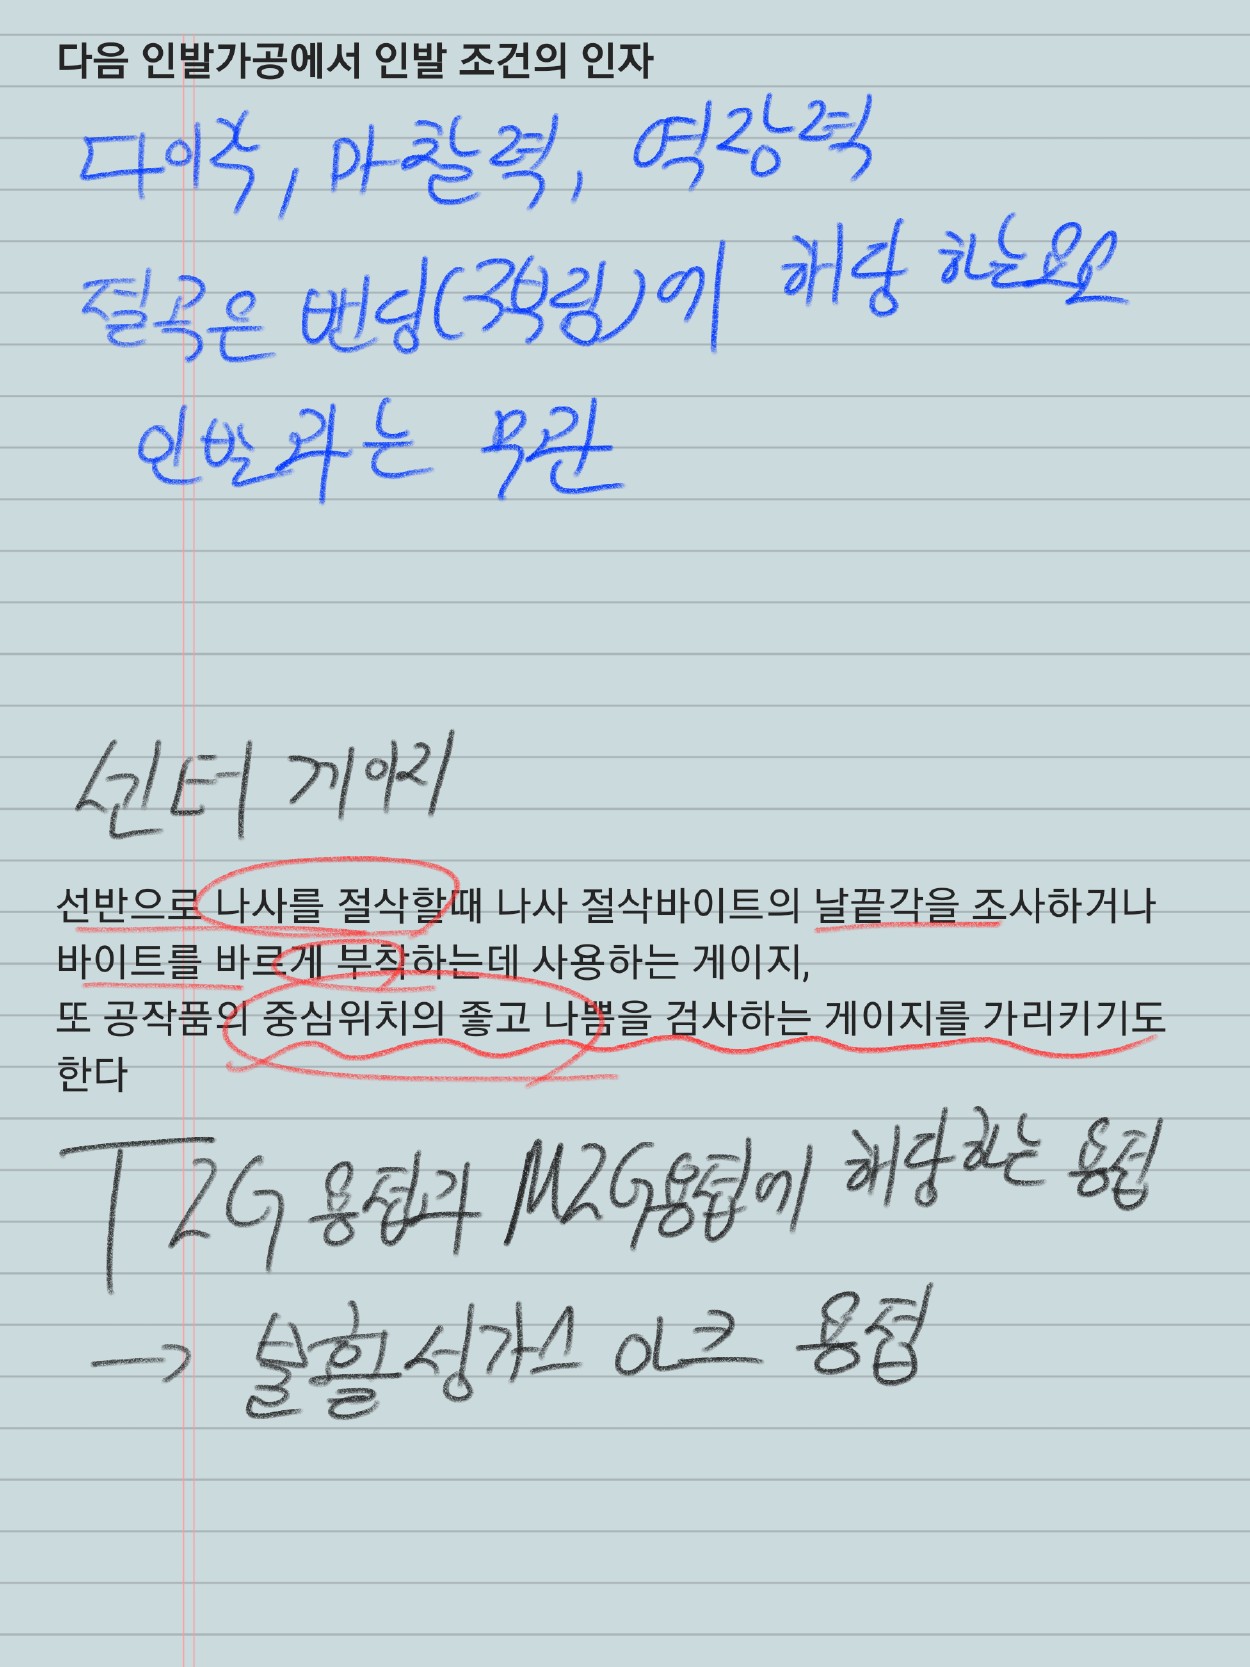 다음 인발가공에서 인발 조건의 인자
다이각, 마찰력, 역장력
절곡은 밴딩(구부림)에 해당 하는 요소
인발과는 무관
센터 게이지
선반으로 나사를 절삭할때 나사 절삭바이트의 날끝각을 조사하거나
바이트를 바르게 부착하는데 사용하는 게이지,
또 공작품의 중심위치의 좋고 나쁨을 검사하는 게이지를 가리키기도
한다
TIG 용접과 MIG용접에 해당하는 용접
→ 불활성가스 아크 용접